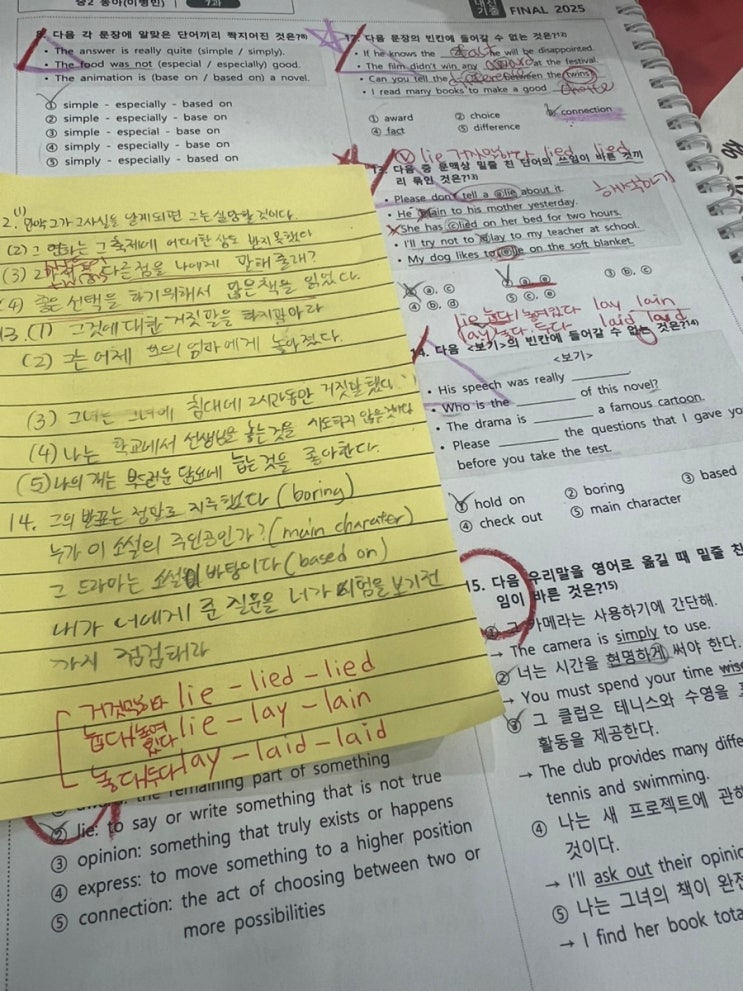 중2 동아(이병민) 7과
내신 기출 FINAL 2025
다음 각 문장에 알맞은 단어끼리 짝지어진 것은?
• The answer is really quite (simple / simply).
• The food was not (especial / especially) good.
• The animation is (base on / based on) a novel.
① simple - especially - based on
② simple - especially - base on
③ simple - especial - base on
④ simply - especially - base on
⑤ simply - especially - based on
12. 다음 문장의 빈칸에 들어갈 수 없는 것은?12)
• If he knows the he will be disappointed.
• The film didn't win any award at the festival.
• Can you tell the difference between the twins?
• I read many books to make a good choice
① award
② choice
③ connection
④ fact
⑤ difference
lie 거짓말하다 lied lied
13. 다음 중 문맥상 밑줄 친 단어의 쓰임이 바른 것끼
리 묶인 것은?13)
해석하기
• Please don't tell a ⓐlie about it.
• He lain to his mother yesterday.
• She has ⓒlied on her bed for two hours.
• I'll try not to ⓓlay to my teacher at school.
• My dog likes to ⓔlie on the soft blanket.
① ⓐ, ⓒ
② ⓐ, ⓔ
③ ⓑ, ⓒ
④ ⓑ, ⓓ
⑤ ⓒ, ⓔ
lie 눕다/놓여있다 lay lain
(lay)놓다. 두다 laid laid
14. 다음 <보기>의 빈칸에 들어갈 수 없는 것은?14)
<보기>
• His speech was really
• Who is the of this novel?
• The drama is a famous cartoon.
• Please the questions that I gave yo
before you take the test.
① hold on
② boring
③ based
④ check out
⑤ main character
15. 다음 우리말을 영어로 옮길 때 밑줄 친
임이 바른 것은?15)
① 그 카메라는 사용하기에 간단해.
→ The camera is simply to use.
② 너는 시간을 현명하게 써야 한다.
→ You must spend your time wise
③ 그 클럽은 테니스와 수영을
활동을 제공한다.
→ The club provides many diffe
tennis and swimming.
④ 나는 새 프로젝트에 관해
것이다.
→ I'll ask out their opinio
⑤ 나는 그녀의 책이 완전
→ I find her book tota
2. (1) 만약 그가 그 사실을 알게되면 그는 실망할 것이다.
(2) 그 영화는 그 축제에 어떠한 상도 받지 못했다
(3) 다른점을 나에게 말해줄래?
(4) 좋은 선택을 하기위해서 많은 책을 읽었다.
13. (1) 그것에 대한 거짓말을 하지말아라
(2) 그는 어제 그의 엄마에게 놓아졌다.
(3) 그녀는 그녀에 침대에 2시간동안 거짓말했다.
(4) 나는 학교에서 선생님은 놓는것을 시도하지 않을것이다
(5) 나의 개는 부드러운 담요에 눕는것을 좋아한다.
14. 그의 발표는 정말로 지루했다 (boring)
누가 이 소설의 주인공인가? (main charater)
그 드라마는 소설이 바탕이다 (based on)
내가 너에게 준 질문을 너가 시험을 보기전
까지 점검해라
거짓말하다 lie - lied - lied
눕다/놓여있다 lie - lay - lain
놓다/두다 lay - laid - laid
the remaining part of something
② lie: to say or write something that is not true
③ opinion: something that truly exists or happens
④ express: to move something to a higher position
⑤ connection: the act of choosing between two or
more possibilities